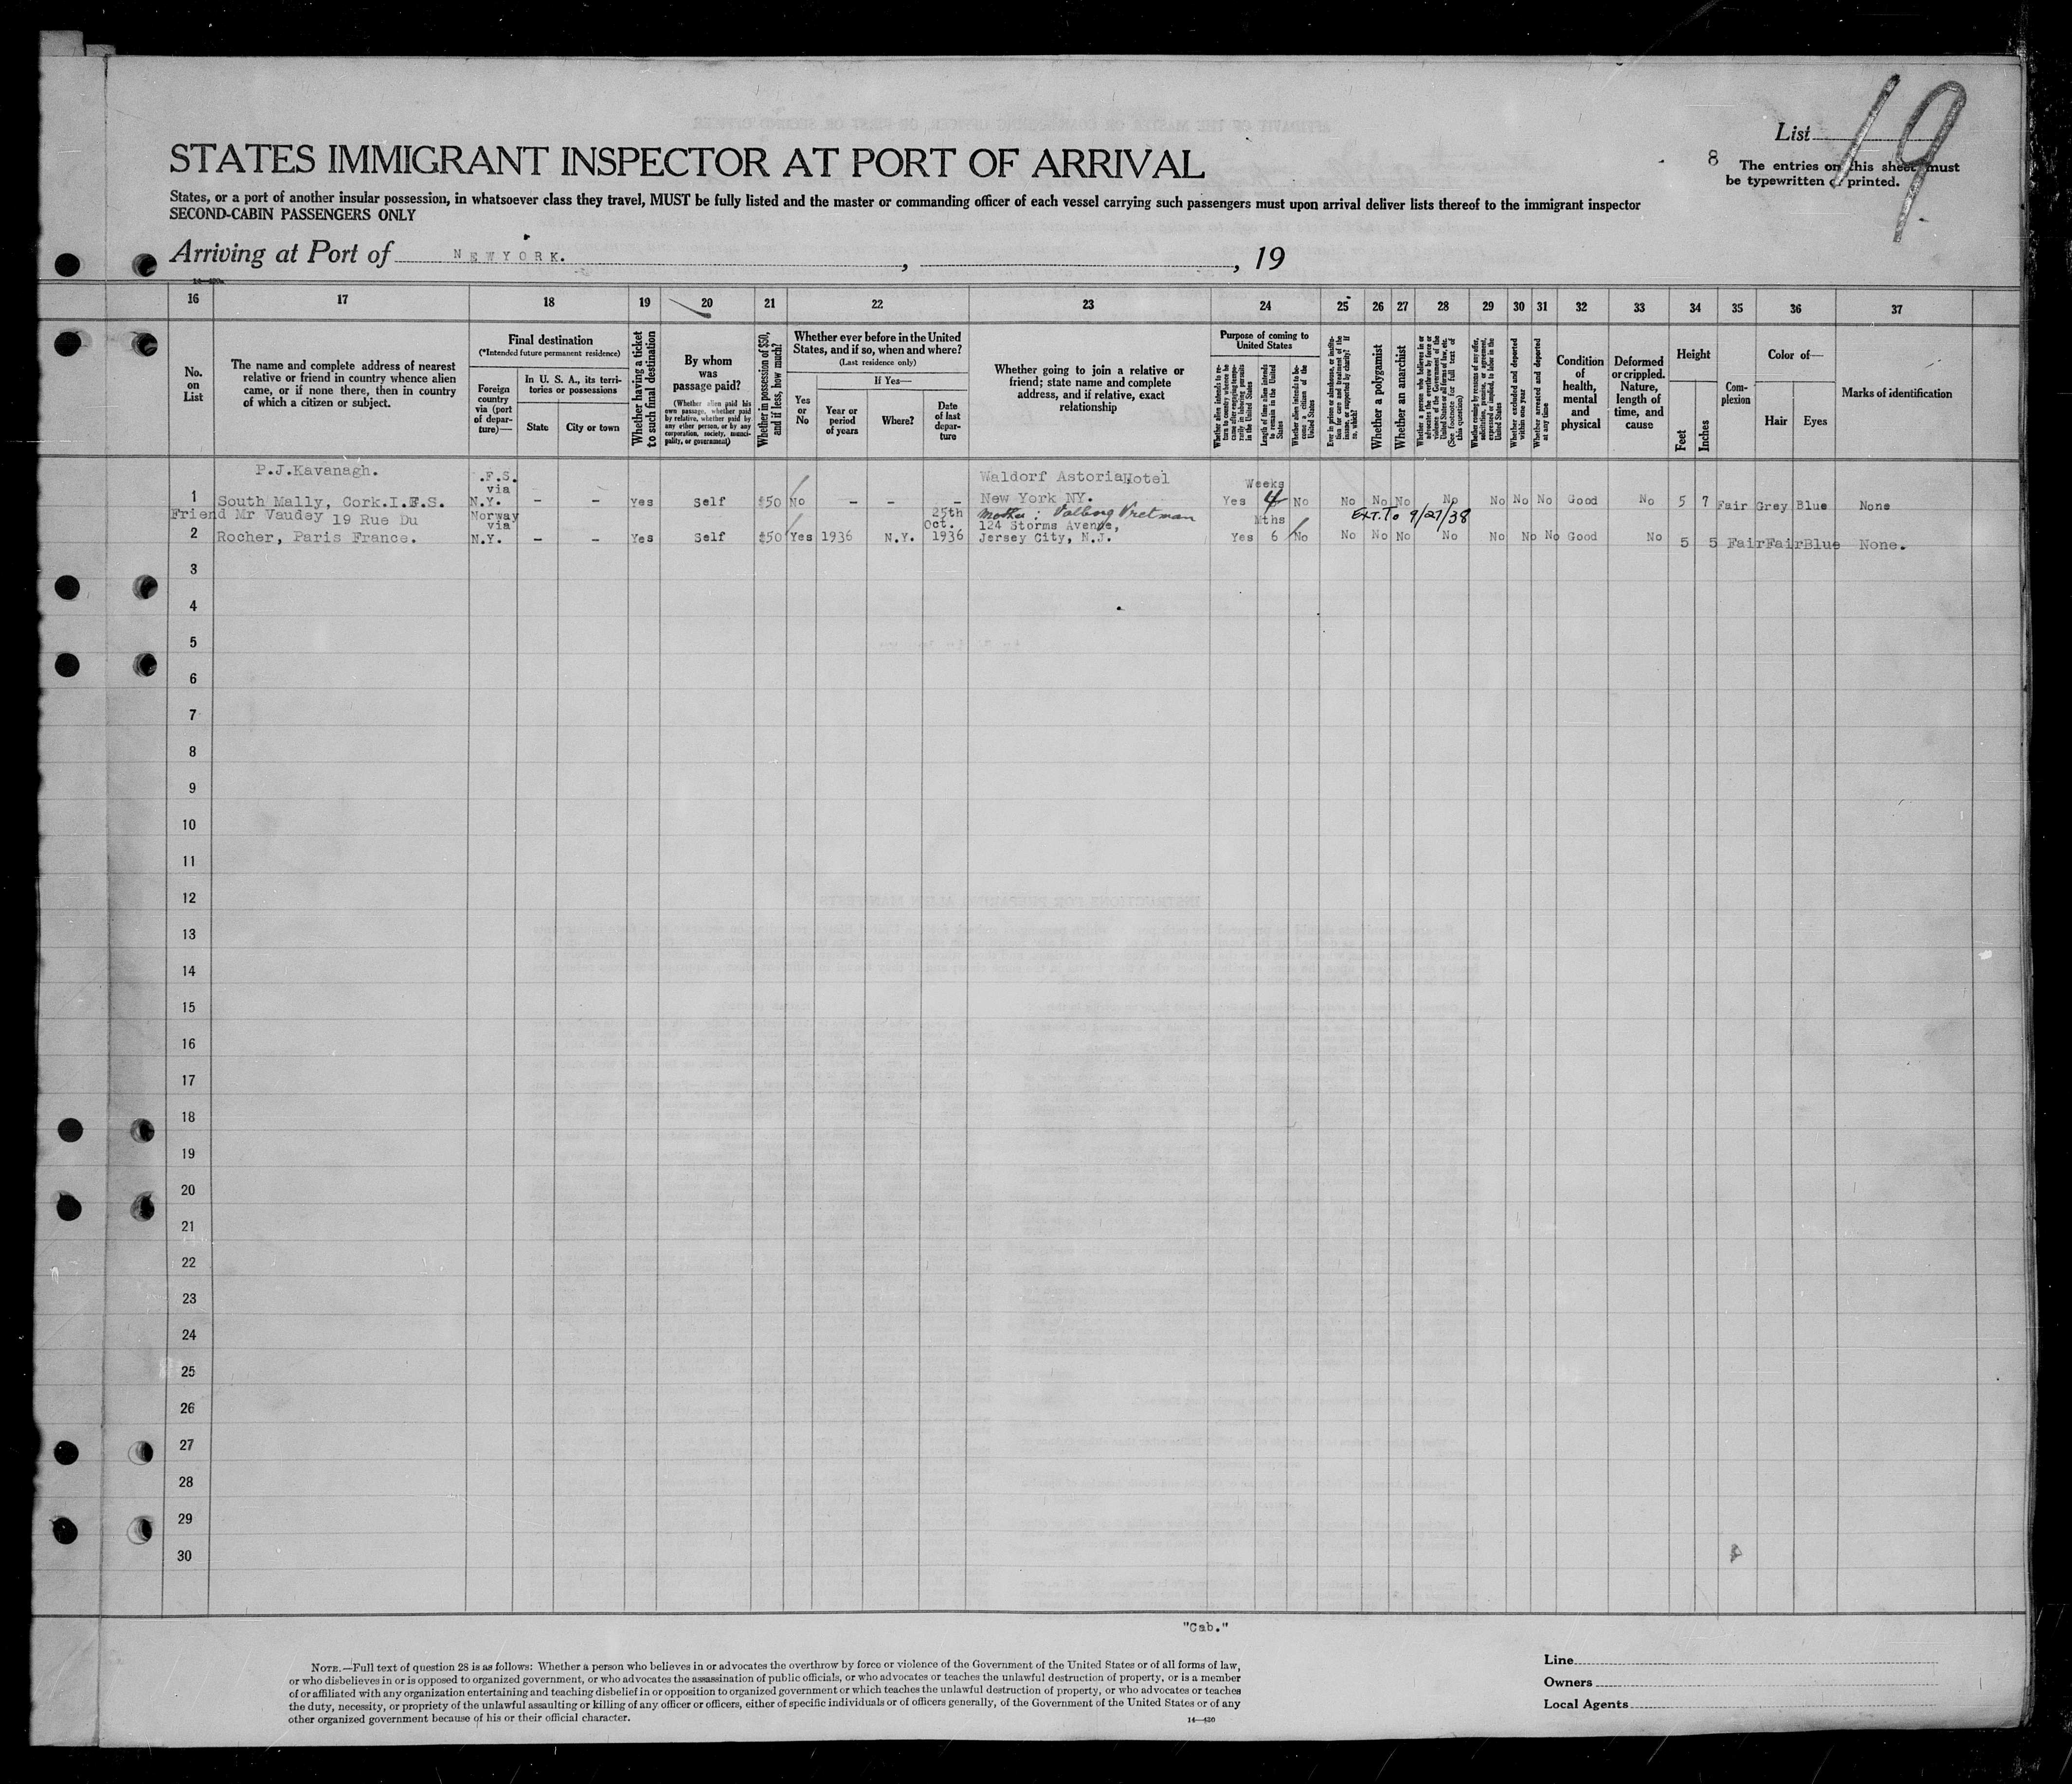 List 19
8
The entries on this sheet must
be typewritten or printed.
STATES IMMIGRANT INSPECTOR AT PORT OF ARRIVAL
States, or a port of another insular possession, in whatsoever class they travel, MUST be fully listed and the master or commanding officer of each vessel carrying such passengers must upon arrival deliver lists thereof to the immigrant inspector
SECOND-CABIN PASSENGERS ONLY
Arriving at Port of NEWYORK. , , 19
16 17 18 19 20 21 22 23 24 25 26 27 28 29 30 31 32 33 34 35 36 37
No.
on
List
The name and complete address of nearest
relative or friend in country whence alien
came, or if none there, then in country
of which a citizen or subject.
Final destination
(*Intended future permanent residence)
Foreign
country
via (port
of depar-
ture)—
In U. S. A., its terri-
tories or possessions
State
City or town
Whether having a ticket
to such final destination
By whom
was
passage paid?
(Whether alien paid his
own passage, whether paid
by relative, whether paid by
any other person, or by any
corporation, society, munici-
pality, or government)
Whether in possession of $50,
and if less, how much?
Whether ever before in the United
States, and if so, when and where?
(Last residence only)
Yes
or
No
If Yes—
Year or
period
of years
Where?
Date
of last
depar-
ture
Whether going to join a relative or
friend; state name and complete
address, and if relative, exact
relationship
Purpose of coming to
United States
Whether alien intends to re-
turn to country whence he
came after engaging tempo-
rarily in laboring pursuits
in the United States
Length of time alien intends
to remain in the United
States
Whether alien intends to be-
come a citizen of the
United States
Ever in prison or almshouse, or institu-
tion for care and treatment of the
insane, or supported by charity? If
so, which?
Whether a polygamist
Whether an anarchist
Whether a person who believes in or
advocates the overthrow by force or
violence of the Government of the
United States or all forms of law, etc.
(See footnote for full text of
this question)
Whether coming by reasons of any offer,
solicitation, promise, or agreement,
expressed or implied, to labor in the
United States
Whether excluded and deported
within one year
Whether arrested and deported
at any time
Condition
of
health,
mental
and
physical
Deformed
or crippled.
Nature,
length of
time, and
cause
Height
Feet
Inches
Com-
plexion
Color of—
Hair
Eyes
Marks of identification
P.J.Kavanagh. .F.S. Waldorf Astoria Hotel
via Weeks
1 South Mally, Cork.I.F.S. N.Y. – – Yes Self $50 No – – – New York NY. Yes 4 No No No No No No No No Good No 5 7 Fair Grey Blue None
Friend Mr Vaudey 19 Rue Du Norway 25th Mother: EXT. To 9/27/38
via Oct. 124 Storms Avenue, Mths
2 Rocher, Paris France. N.Y. – – Yes Self $50 Yes 1936 N.Y. 1936 Jersey City, N.J. Yes 6 No No No No No No No No Good No 5 5 Fair Fair Blue None.
3
4
5
6
7
8
9
10
11
12
13
14
15
16
17
18
19
20
21
22
23
24
25
26
27
28
29
30
"Cab."
NOTE.—Full text of question 28 is as follows: Whether a person who believes in or advocates the overthrow by force or violence of the Government of the United States or of all forms of law,
or who disbelieves in or is opposed to organized government, or who advocates the assassination of public officials, or who advocates or teaches the unlawful destruction of property, or is a member
of or affiliated with any organization entertaining and teaching disbelief in or opposition to organized government or which teaches the unlawful destruction of property, or who advocates or teaches
the duty, necessity, or propriety of the unlawful assaulting or killing of any officer or officers, either of specific individuals or of officers generally, of the Government of the United States or of any
other organized government because of his or their official character.
14—430
Line
Owners
Local Agents